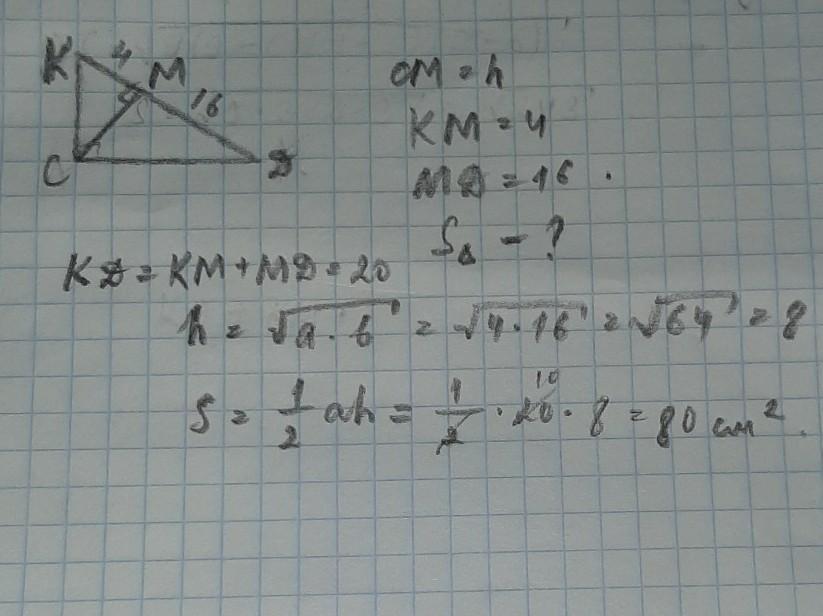 K 4 M 16
C D
CM = h
KM = 4
MD = 16 .
S△ - ?
KD = KM + MD = 20
h = √a · b = √4 · 16 = √64 = 8
S = 1/2 ah = 1/2 · 20 · 8 = 80 см².
10